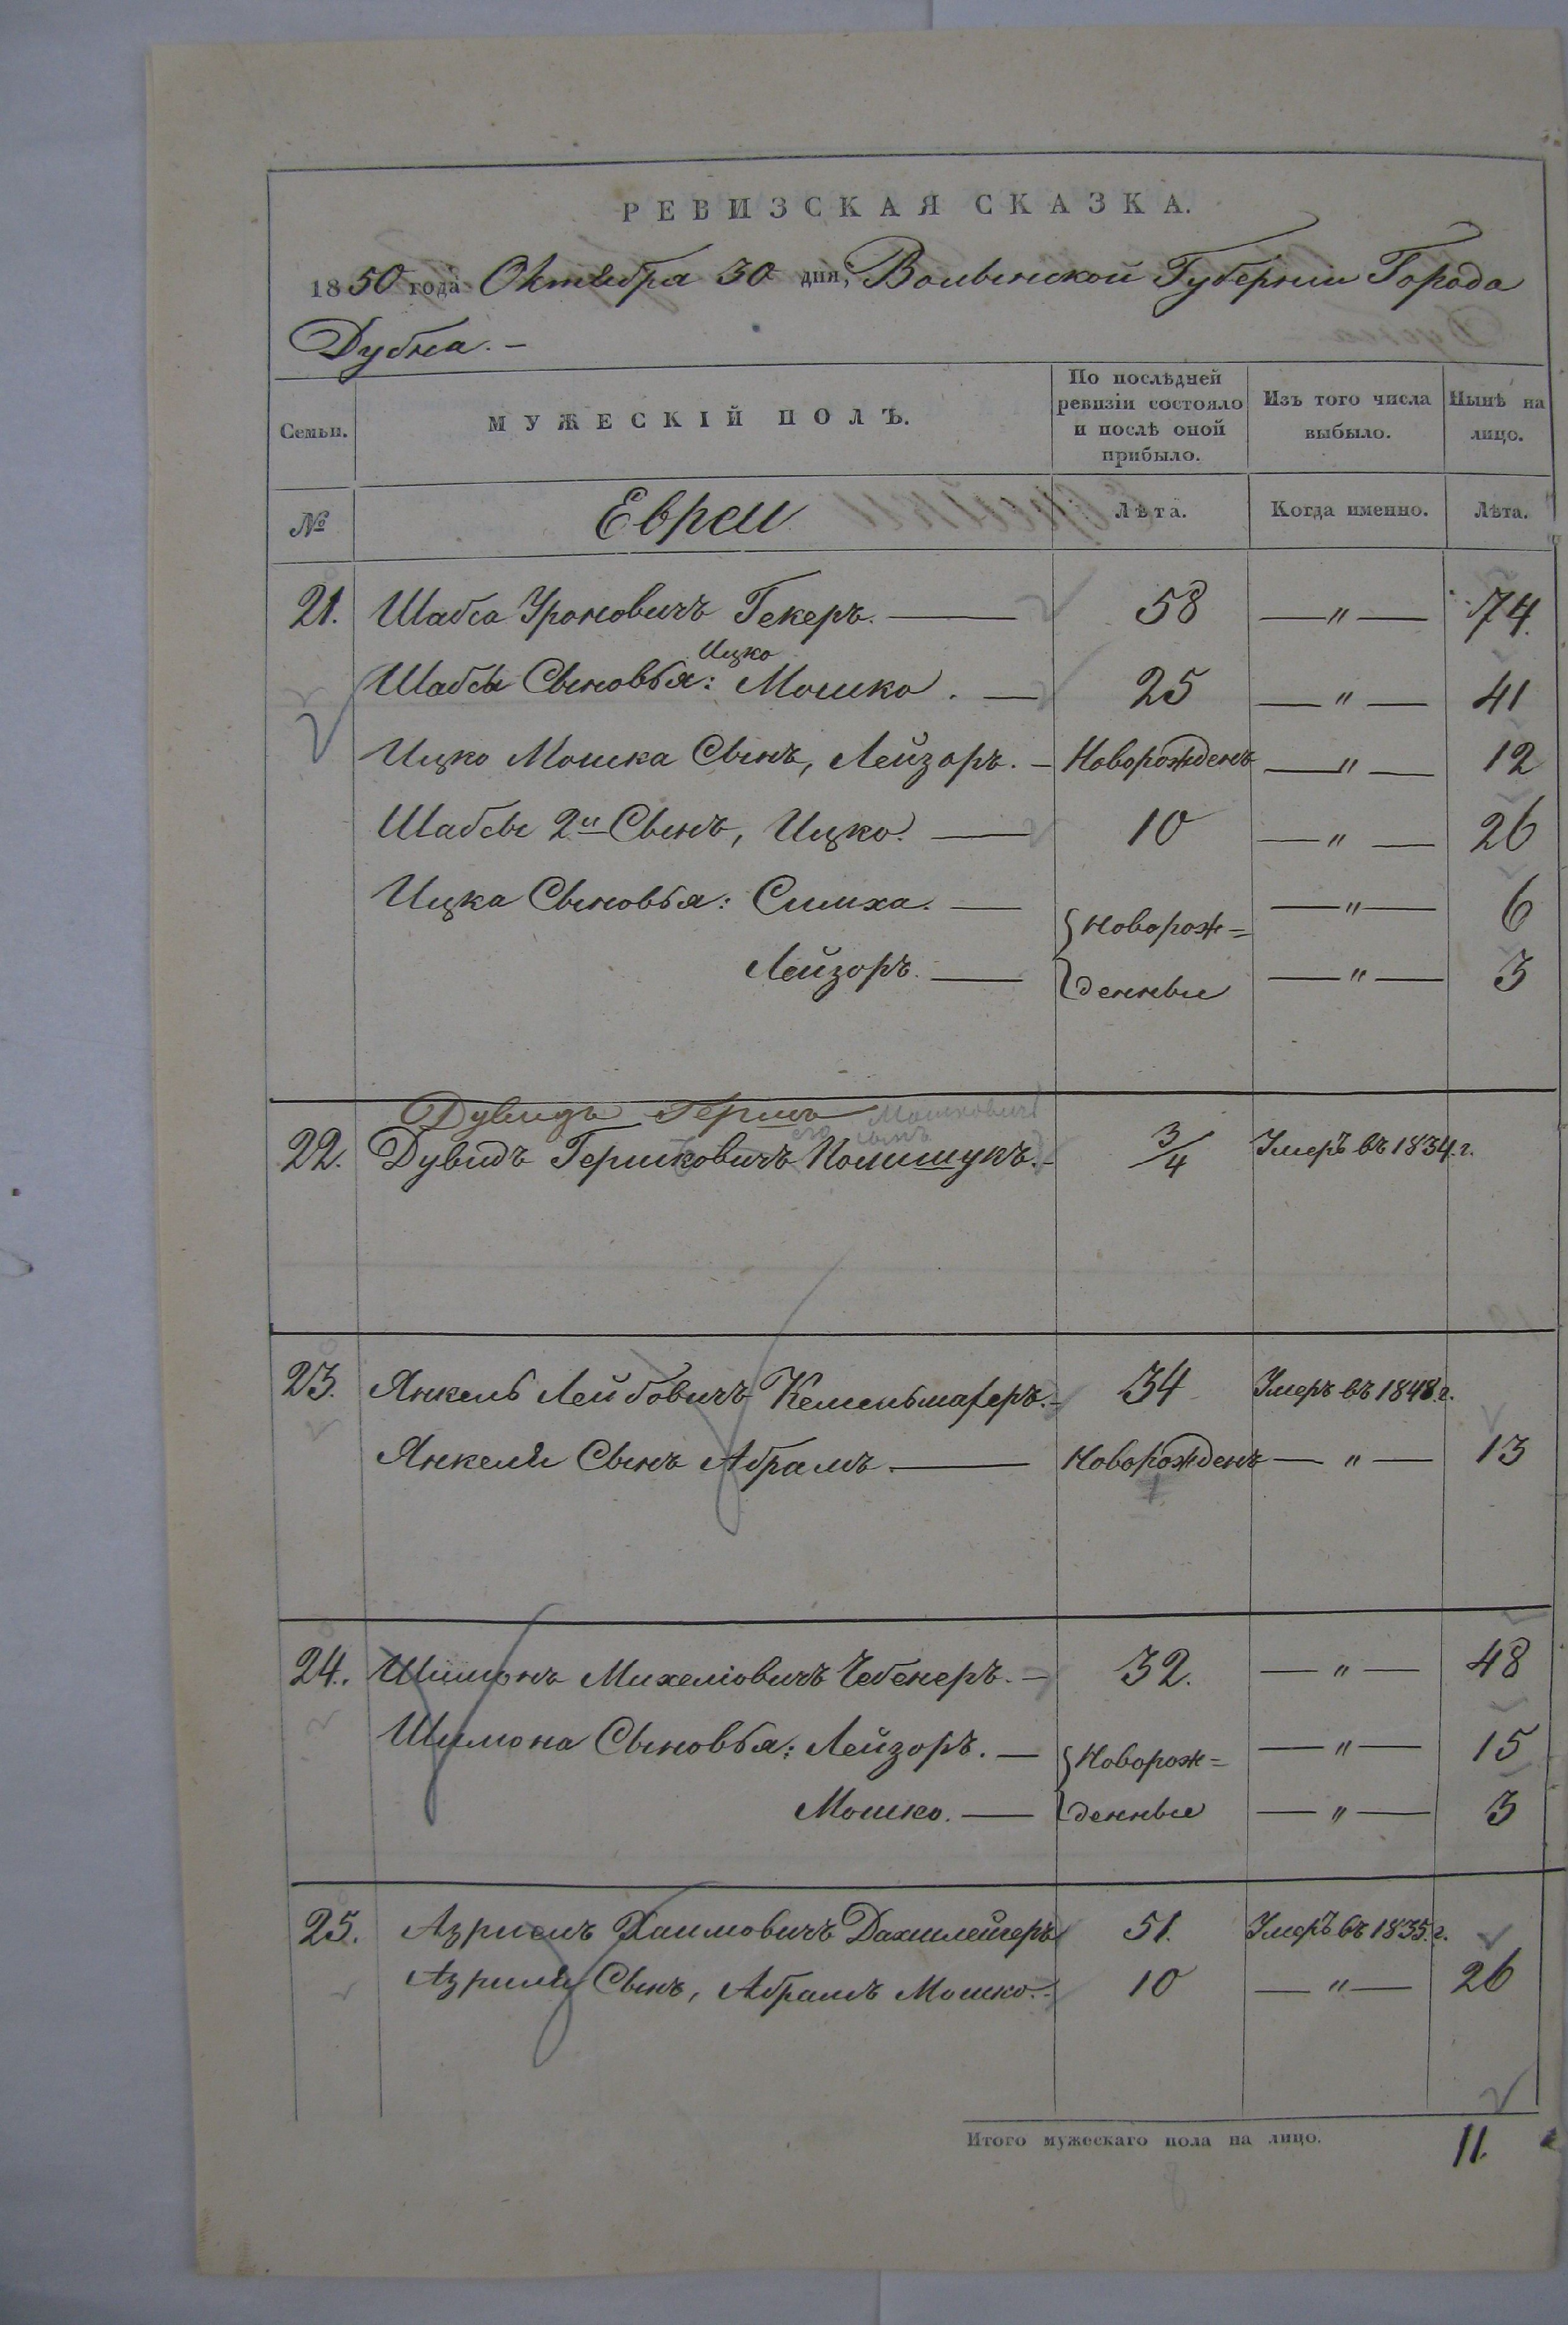 РЕВИЗСКАЯ СКАЗКА.
1850 года Октября 30 дня, Волынской Губернии Города
Дубна. –
Семьи. МУЖЕСКІЙ ПОЛЪ. По послѣдней ревизіи состояло и послѣ оной прибыло. Изъ того числа выбыло. Нынѣ на лицо.
№ Евреи Лѣта. Когда именно. Лѣта.
21. Шабса Уроновичъ Гекеръ. — 58 — " — 74.
Ицко
Шабсы Сыновья: Мошко. — 25 — " — 41
Ицко Мошка Сынъ, Лейзоръ. – Новорожденъ — " — 12
Шабсы 2й Сынъ, Ицко. — 10 — " — 26
Ицка Сыновья: Симха. — Новорож= — " — 6
Лейзоръ. — денные — " — 3
Дувидъ Герша Мошковичъ
его сынъ
22. Дувидъ Гершковичъ Полищукъ. – 3/4 Умеръ въ 1834. г.
23. Янкель Лейбовичъ Кемельмахеръ. – 34 Умеръ въ 1848. г.
Янкеля Сынъ Абрамъ. — Новорожденъ — " — 13
24. Шимонъ Михелiовичъ Чебенеръ. – 32. — " — 48
Шимона Сыновья: Лейзоръ. — Новорож= — " — 15
Мошко. — денные — " — 3
25. Азриель Хаимовичъ Дахшлейгеръ 51. Умеръ въ 1835. г.
Азриля Сынъ, Абрамъ Мошко. – 10 — " — 26
Итого мужескаго пола на лицо. 11.